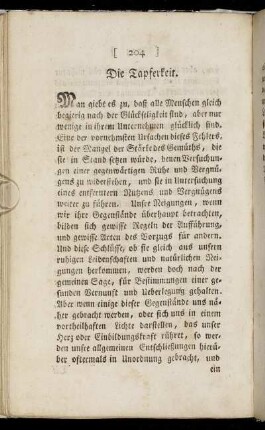 [ 204 ]
Die Tapferkeit.
Man giebt es zu, daß alle Menschen gleich
begierig nach der Glückseligkeit sind, aber nur
wenige in ihrem Unternehmen glücklich sind.
Eine der vornehmsten Ursachen dieses Fehlers
ist der Mangel der Stärke des Gemüths, die
sie in Stand setzen würde, denen Versuchungen
einer gegenwärtigen Ruhe und Vergnügens
zu widerstehen, und sie in Untersuchung
eines entfernteren Nutzens und Vergnügens
weiter zu führen. Unsre Neigungen, wenn
wir ihre Gegenstände überhaupt betrachten,
bilden sich gewisse Regeln der Aufführung,
und gewisse Arten des Vorzugs für andern.
Und diese Schlüsse, ob sie gleich aus unsren
ruhigen Leidenschaften und natürlichen Neigungen
herkommen, werden doch nach der
gemeinen Sage, für Bestimmungen einer gesunden
Vernunft und Ueberlegung gehalten.
Aber wenn einige dieser Gegenstände uns näher
gebracht werden, oder sich uns in einem
vortheilhaften Lichte darstellen, das unser
Herz oder Einbildungskraft rühret, so werden
unsre allgemeinen Entschließungen hierüber
oftermals in Unordnung gebracht, und
ein